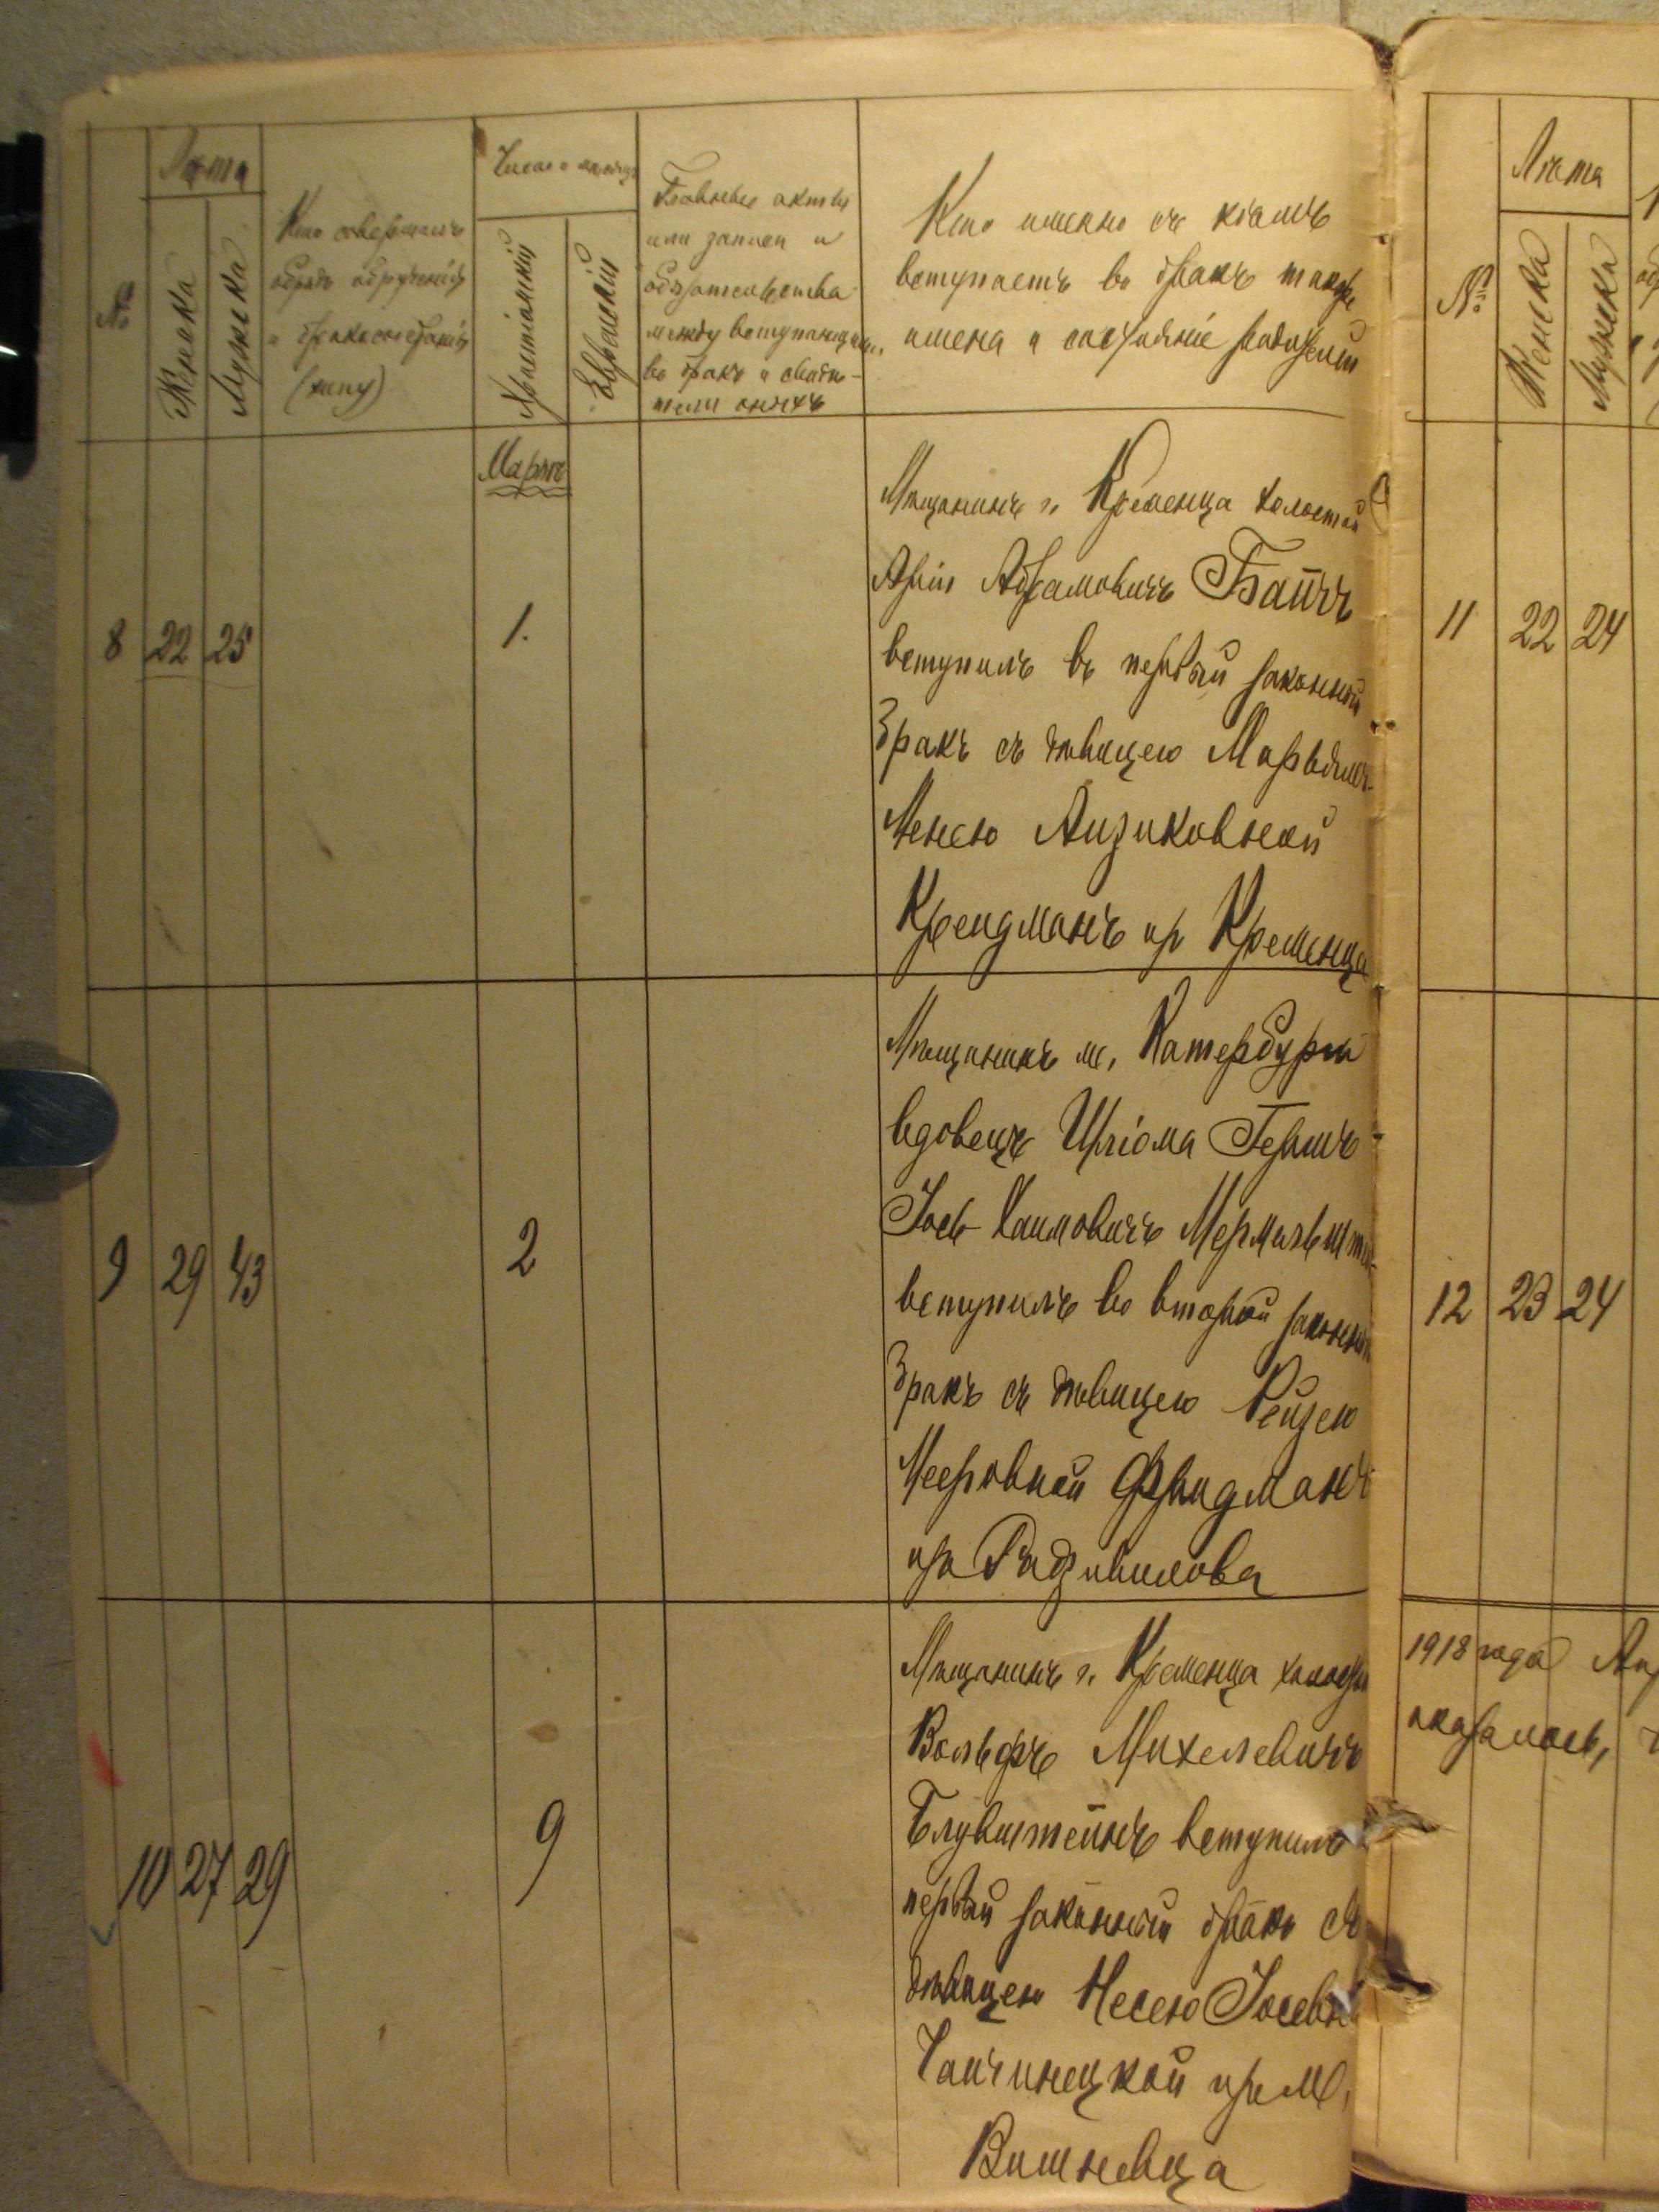 №
Лѣта
Женска
Мужска
Кто совершалъ
обрядъ обрученія
и бракосочетанія
(хипу)
Число и мѣсяцъ
Христіанскій
Еврейскій
Главные акты
или записи и
обязательства
между вступающими
въ бракъ и свидѣ-
тели оныхъ
Кто именно съ кѣмъ
вступаетъ въ бракъ также
имена и состояніе родителей
Мартъ
8 22 25 1.
Мѣщанинъ г. Кременца холостой
Арія Абрамовичъ Байчъ
вступилъ въ первый законный
бракъ съ дѣвицею
Менею Айзиковной
Крейдманъ из Кременца
9 29 43 2
Мѣщанинъ м. Катербурга
вдовецъ Шлiома Гершъ-
Іось Хаимовичъ
вступилъ во второй законный
бракъ съ дѣвицею Рейзею
Мееровной Фридманъ
изъ Радзивилова
10 27 29 9
Мѣщанинъ г. Кременца холостой
Вольфъ Михелевичъ
Блувштейнъ вступилъ
первый законный бракъ съ
дѣвицею Несею Іосевн
Чайчинецкой изъ м.
Вишневца
№
Лѣта
Женска
Мужска
11 22 24
12 23 24
1918 года Ап
оказалось,